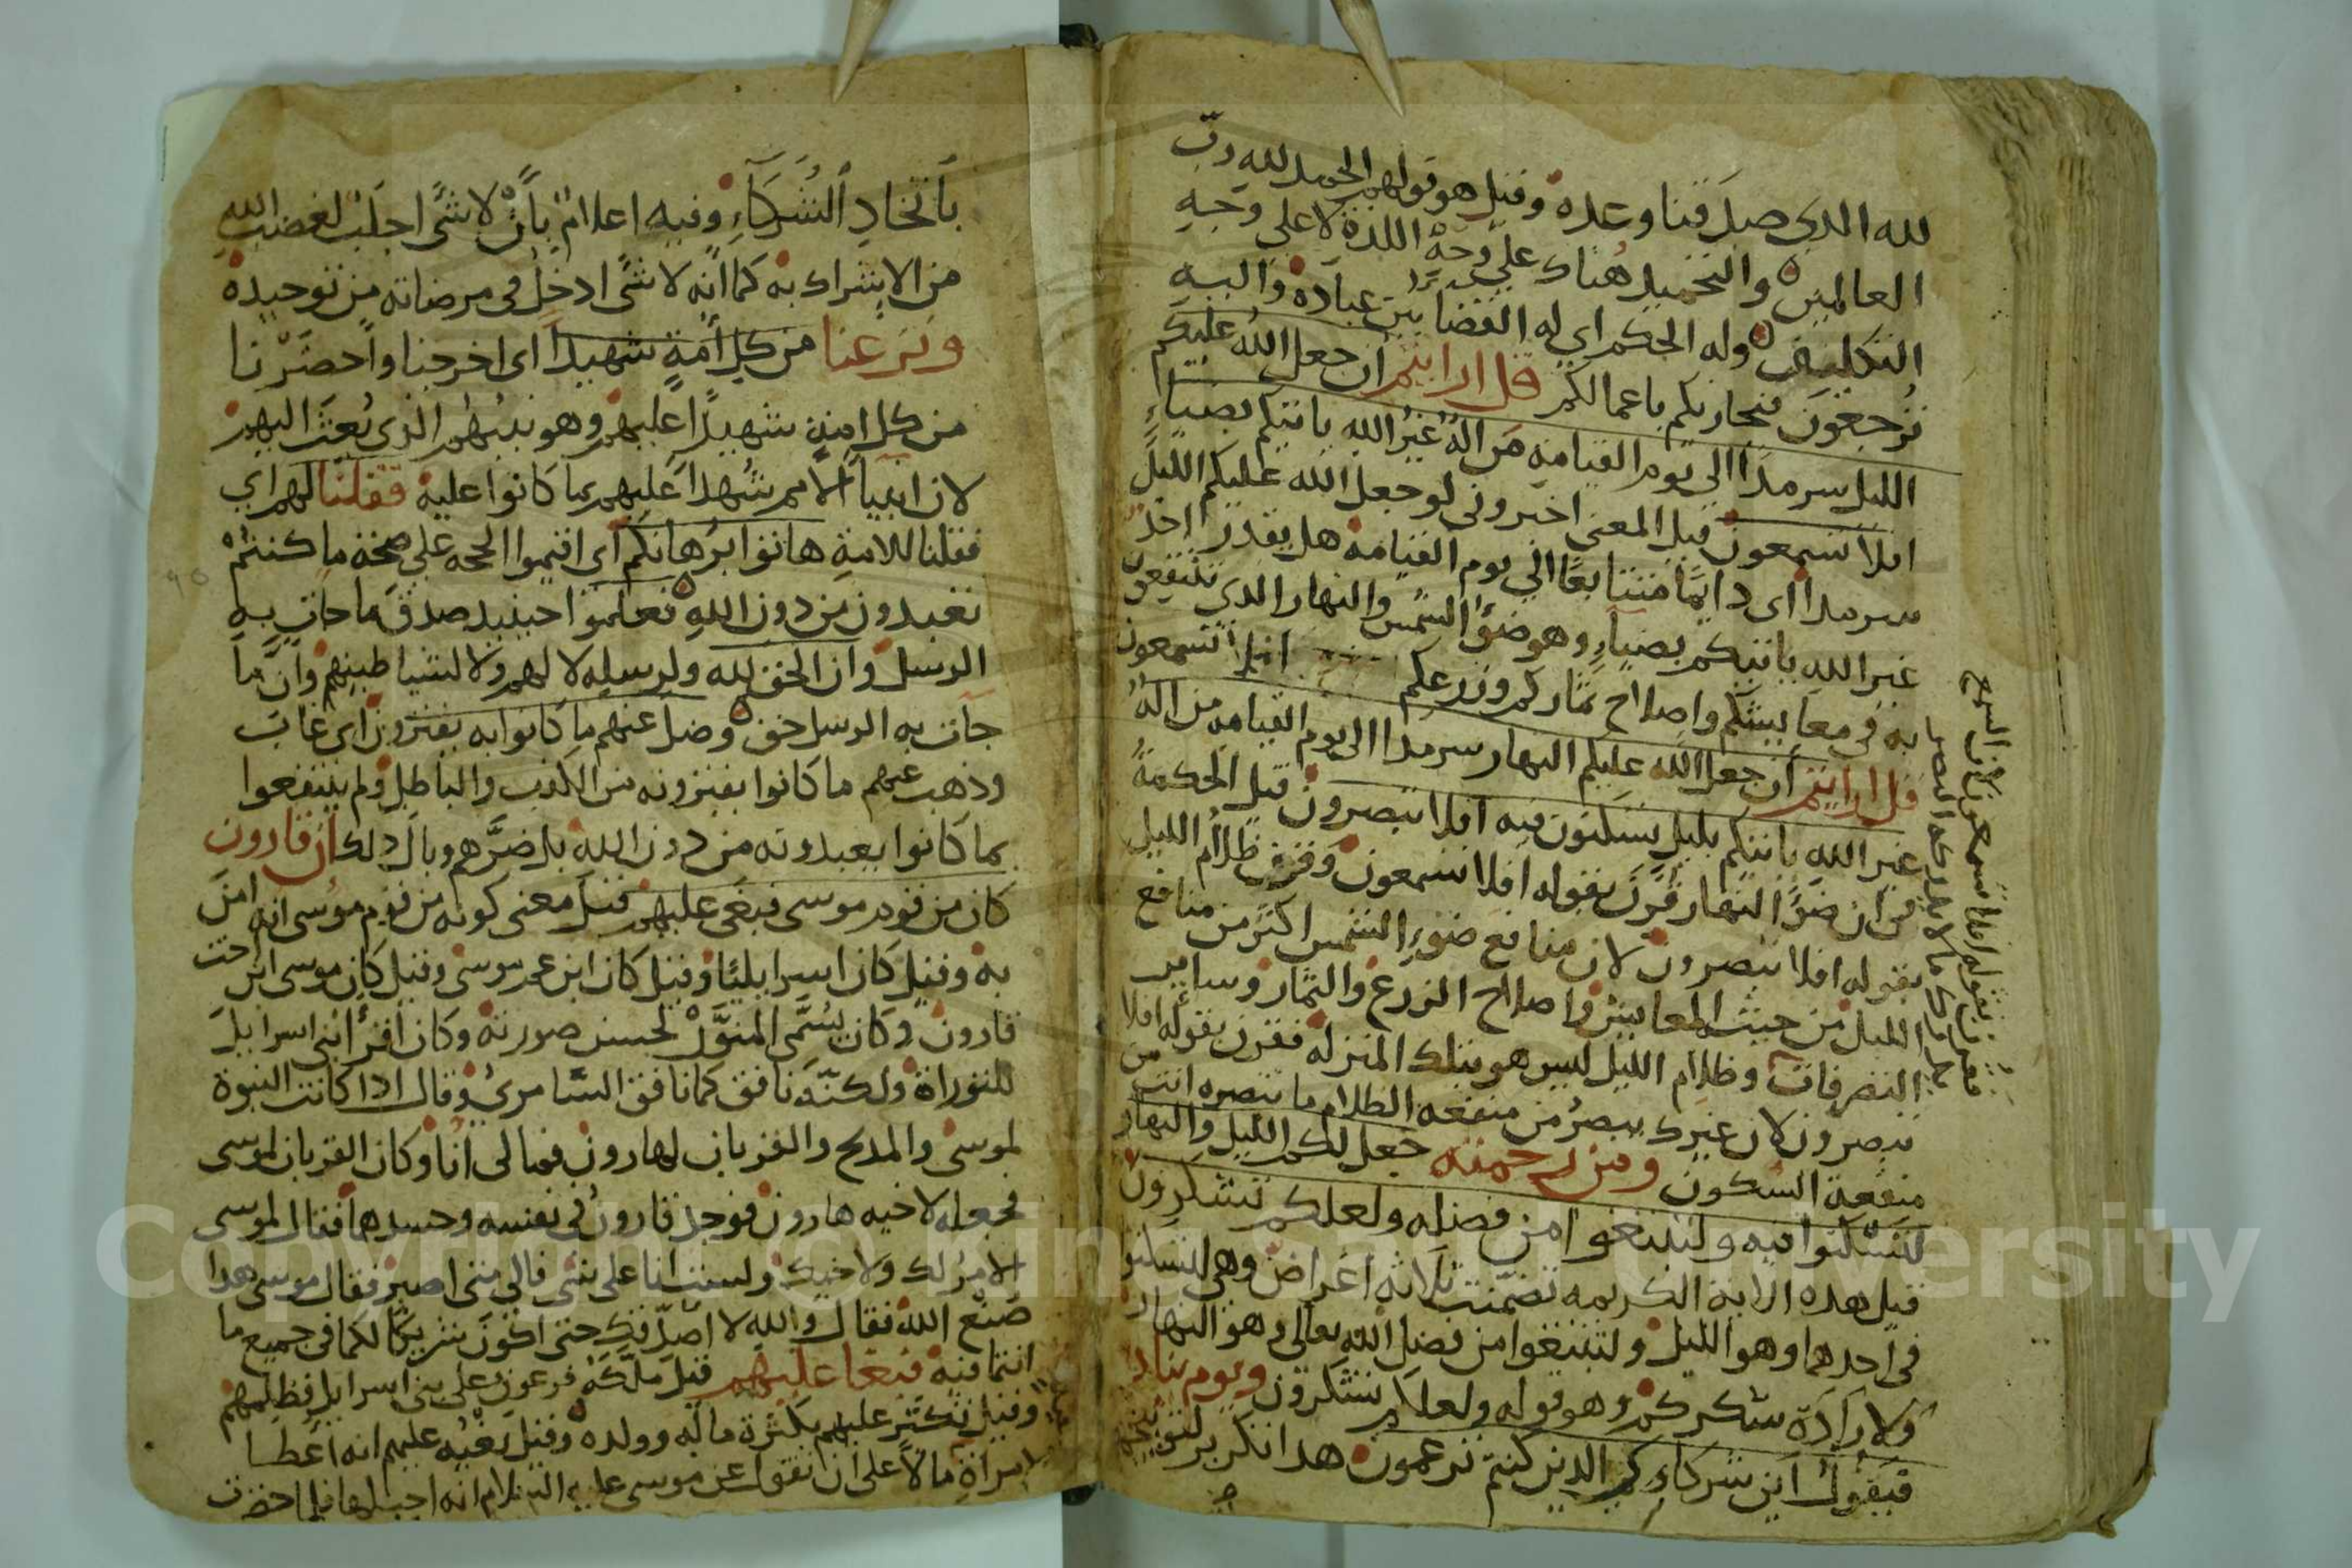 لله الذي صدقنا وعده وقيل هو قولهم الحمد لله رب
العالمين والتحميد هناك على وجه اللذة لا على وجه
التكليف وله الحكم اي له القضا بين عباده واليه
ترجعون فيجازيكم باعمالكم قل ارايتم ان جعل الله عليكم
الليل سرمدا الى يوم القيامه من اله غير الله ياتيكم بضياء
افلا تسمعون قيل المعنى اخبروني لو جعل الله عليكم الليل
سرمدا اى دايما متتابعا الي يوم القيامه هل يقدر احد
غير الله ياتيكم بضياء وهو ضوء الشمس والنهار الذي تنتفعون
به في معايشكم واصلاح ثماركم وزرعكم افلا تسمعون
قل ارايتم ان جعل الله عليكم النهار سرمدا الى يوم القيامه من اله
غير الله ياتيكم بليل تسكنون فيه افلا تبصرون قيل الحكمة
في ان ضوء النهار قرن بقوله افلا تسمعون وقرن ظلام الليل
بقوله افلا تبصرون لان منافع ضوء الشمس اكثر من منافع
الليل من حيث المعايش واصلاح الزرع والثمار وساير
التصرفات وظلام الليل ليس هو بتلك المنزله فقرن بقوله افلا
تبصرون لان غيرك يبصر من منفعه الظلام ما تبصره انت من
منفعة السكون ومن رحمته جعل لكم الليل والنهار
لتسكنوا فيه ولتبتغوا من فضله ولعلكم تشكرون
قيل هذه الاية الكريمه تضمنت ثلاثه اغراض وهي لتسكنوا
في احدهما وهو الليل ولتبتغوا من فضل الله تعالى وهو النهار
ولارادة شكركم وهو قوله ولعلكم تشكرون ويوم يناد
فيقول اين شركاءي الذين كنتم تزعمون هذا تكرير لتوبيخهم
باتخاذ الشركاء وفيه اعلام بان لا شى اجلب لغضب الله
من الاشراك به كما انه لا شى ادخل فى مرضاته من توحيده
ونزعنا من كل امة شهيدا اى اخرجنا واحضرنا
من كل امة شهيدا عليهم وهو نبيهم الذى بعث اليهم
لان انبيا الامم شهدا عليهم بما كانوا عليه فقلنا لهم اي
فقلنا للامة هاتوا برهانكم اى اقيموا الحجه على صحة ما كنتم
تعبدون من دون الله فعلموا حينيذ صدق ما جات به
الرسل وان الحق لله ولرسله لا لهم ولا لشياطينهم وان ما
جات به الرسل حق وضل عنهم ما كانوا به يفترون اى غاب
وذهب عنهم ما كانوا يفترونه من الكذب والباطل ولم ينتفعوا
بما كانوا يعبدونه من دون الله بل ضرهم وبال ذلك ان قارون
كان من قوم موسى فبغى عليهم قيل معنى كونه من قوم موسى انه امن
به وقيل كان اسرايليا وقيل كان ابن عم موسى وقيل كان موسى ابن اخت
قارون وكان يسمى المنور لحسن صورته وكان اقرا بني اسرايل
للتوراة ولكنه نافق كما نافق السامري وقال اذا كانت النبوة
لموسى والمذبح والقربان لهارون فما لى انا وكان القربان لموسى
فجعله لاخيه هارون فوجد قارون في نفسه وحسدهما فقال لموسى
الامر لك ولاخيك ولست انا على شى فالى متى اصبر فقال موسى هذا
صنع الله فقال والله لا اصدقك حتى اكون شريكا لكما في جميع ما
انتما فيه فبغا عليهم قيل ملكه فرعون على بني اسرايل فظلمهم
وقيل تكثر عليهم بكثرة ماله وولده وقيل بغيه عليهم انه اعطا
امراة مالا على ان تقول عن موسى عليه السلام انه احبلها فلما حضرت